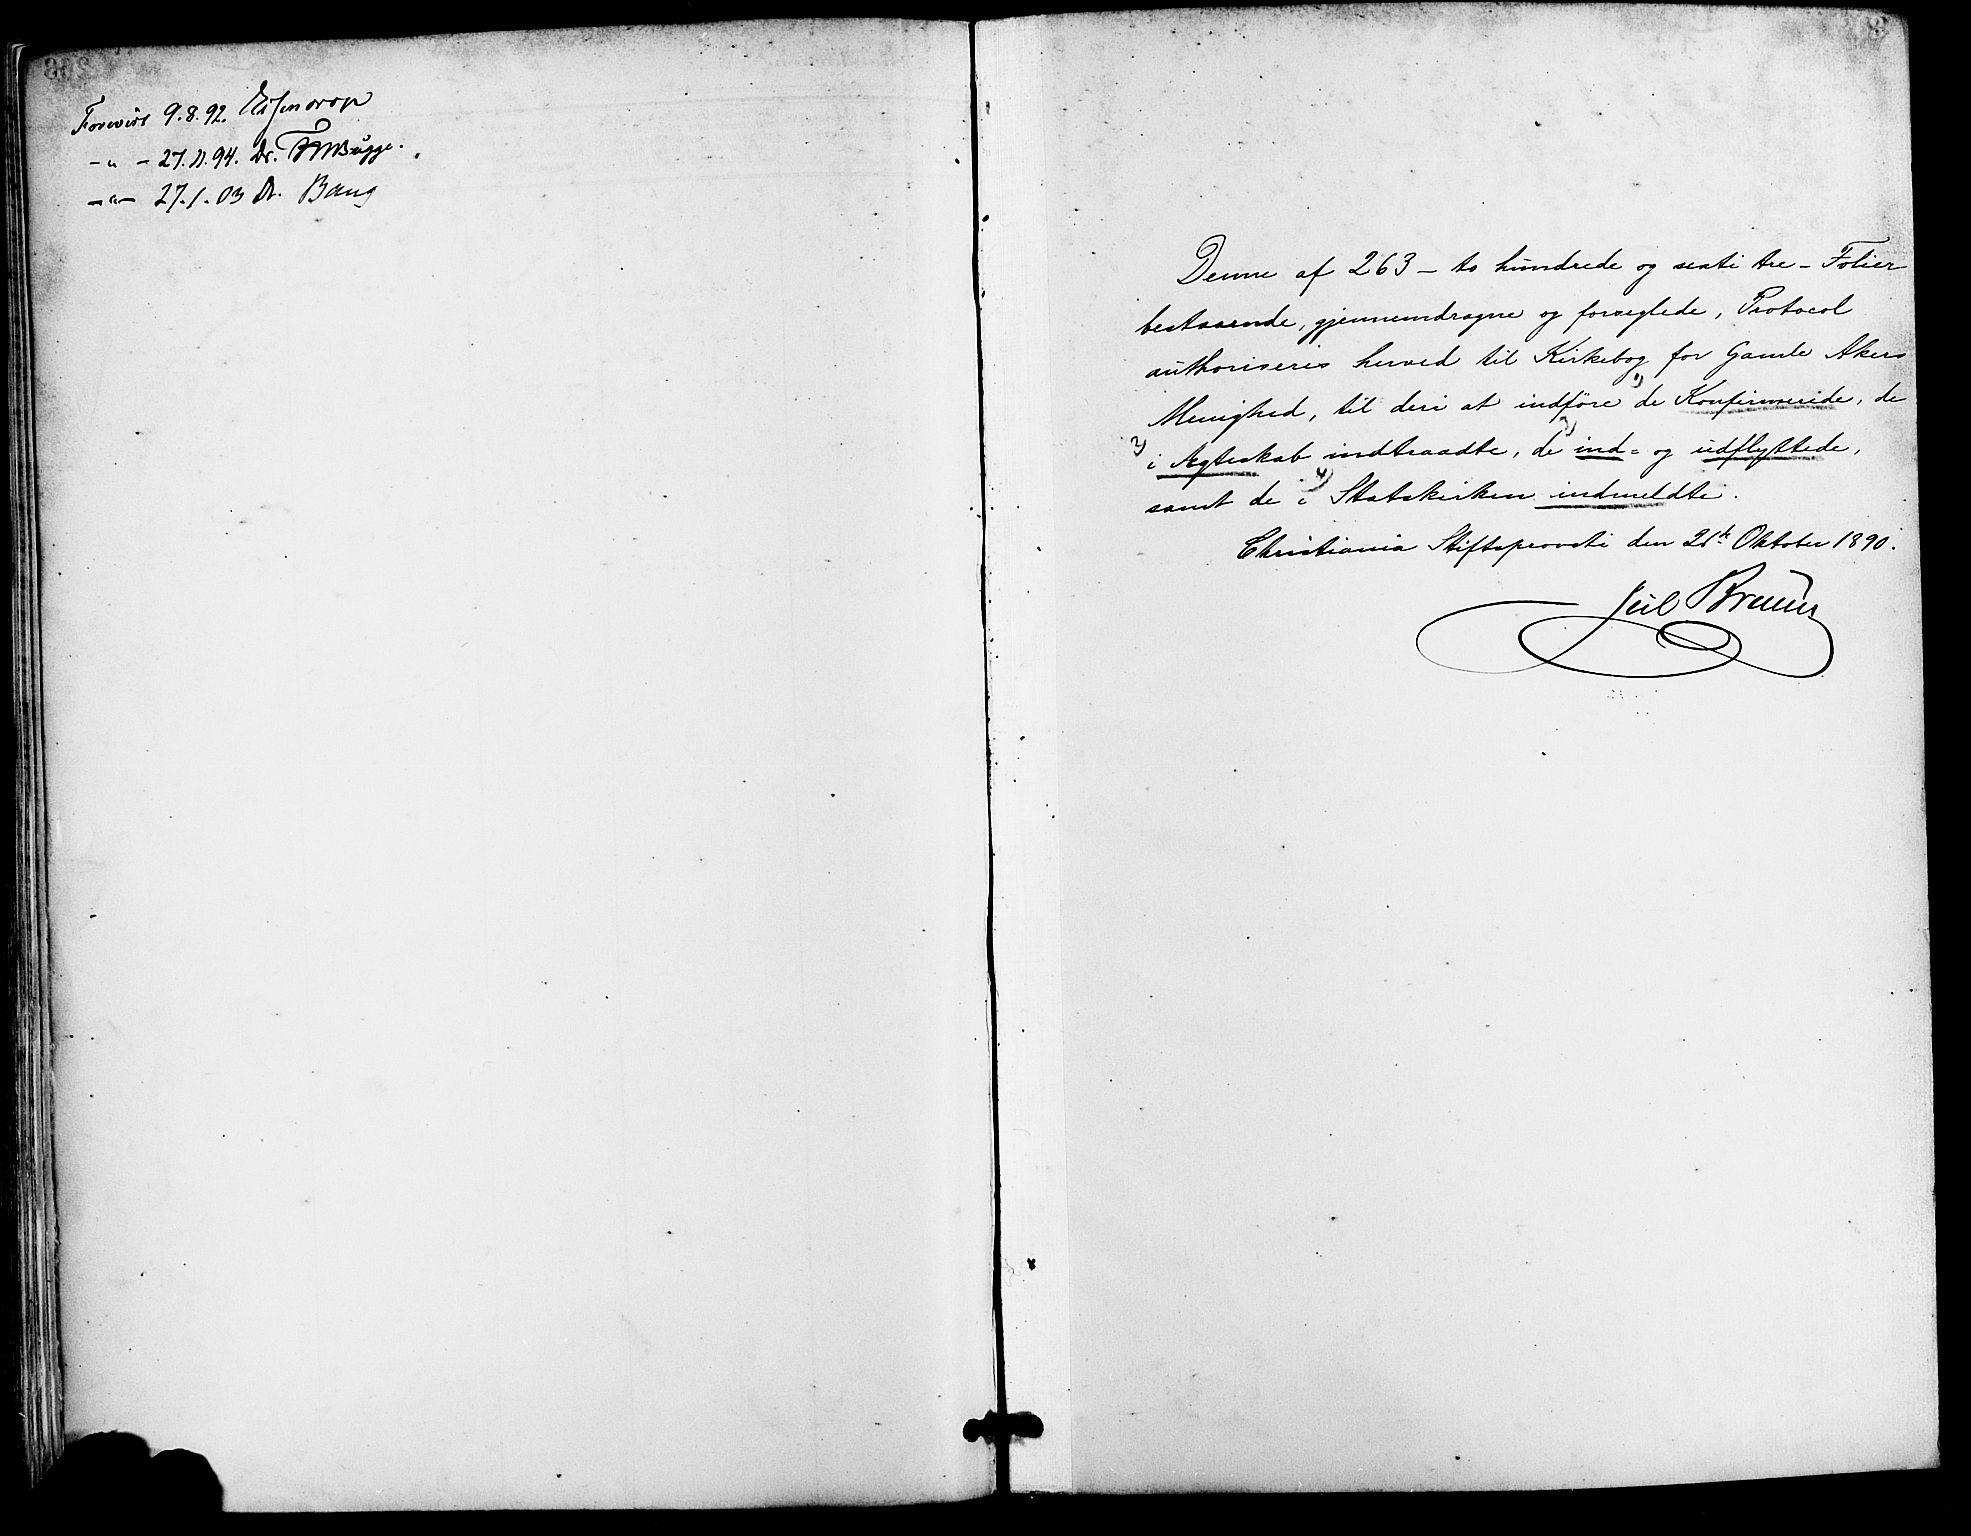 Forevist 9.8.92. Essendrop
-"- 27.11.94. Dr. FWBugge.
-"- 27.1.03 Dr. Bang
Denne af 263 - to hundrede og sexti tre - Folier
bestaaende, gjennemdragne og forseglede, Protocol
authoriseres herved til Kirkebog for Gamle Akers
Menighed, til deri at indføre 1) de Konfirmerede, de
2) i Ægteskab indtraadte, de 3) ind= og udflyttede,
samt de i 4) Statskirken indmeldte.
Christiania Stiftsprovsti den 21de Oktober 1890.
Jul Bruun